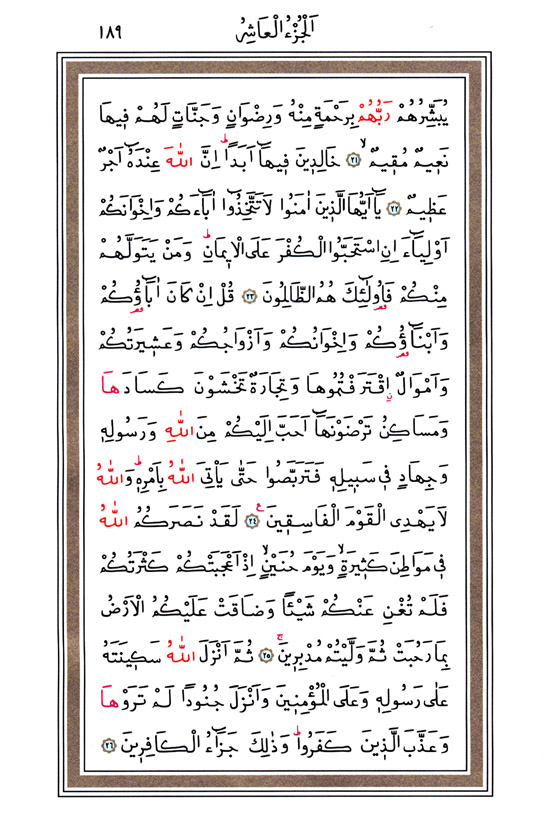 ١٨٩ اَلْجُزْءُ الْعَاشِرُ
يُبَشِّرُهُمْ رَبُّهُمْ بِرَحْمَةٍ مِنْهُ وَرِضْوَانٍ وَجَنَّاتٍ لَهُمْ فِيهَا
نَعِيمٌ مُقِيمٌۙ ﴿٢١﴾ خَالِدِينَ فِيهَٓا اَبَدًاۜ اِنَّ اللّٰهَ عِنْدَهُٓ اَجْرٌ
عَظِيمٌ ﴿٢٢﴾ يَٓا اَيُّهَا الَّذِينَ اٰمَنُوا لَا تَتَّخِذُٓوا اٰبَٓاءَكُمْ وَاِخْوَانَكُمْ
اَوْلِيَٓاءَ اِنِ اسْتَحَبُّوا الْكُفْرَ عَلَى الْاِيمَانِۜ وَمَنْ يَتَوَلَّهُمْ
مِنْكُمْ فَاُو۬لٰٓئِكَ هُمُ الظَّالِمُونَ ﴿٢٣﴾ قُلْ اِنْ كَانَ اٰبَٓاؤُ۬كُمْ
وَاَبْنَٓاؤُ۬كُمْ وَاِخْوَانُكُمْ وَاَزْوَاجُكُمْ وَعَشِيرَتُكُمْ
وَاَمْوَالٌۨ اقْتَرَفْتُمُوهَا وَتِجَارَةٌ تَخْشَوْنَ كَسَادَهَا
وَمَسَاكِنُ تَرْضَوْنَهَٓا اَحَبَّ اِلَيْكُمْ مِنَ اللّٰهِ وَرَسُولِهِ
وَجِهَادٍ فِي سَبِيلِهِ فَتَرَبَّصُوا حَتّٰى يَأْتِيَ اللّٰهُ بِاَمْرِهِۜ وَاللّٰهُ
لَا يَهْدِي الْقَوْمَ الْفَاسِقِينَ۟ ﴿٢٤﴾ لَقَدْ نَصَرَكُمُ اللّٰهُ
فِي مَوَاطِنَ كَثِيرَةٍۙ وَيَوْمَ حُنَيْنٍۙ اِذْ اَعْجَبَتْكُمْ كَثْرَتُكُمْ
فَلَمْ تُغْنِ عَنْكُمْ شَيْـًٔا وَضَاقَتْ عَلَيْكُمُ الْاَرْضُ
بِمَا رَحُبَتْ ثُمَّ وَلَّيْتُمْ مُدْبِرِينَۚ ﴿٢٥﴾ ثُمَّ اَنْزَلَ اللّٰهُ سَكِينَتَهُ
عَلٰى رَسُولِهِ وَعَلَى الْمُؤْمِنِينَ وَاَنْزَلَ جُنُودًا لَمْ تَرَوْهَا
وَعَذَّبَ الَّذِينَ كَفَرُواۜ وَذٰلِكَ جَزَٓاءُ الْكَافِرِينَ ﴿٢٦﴾